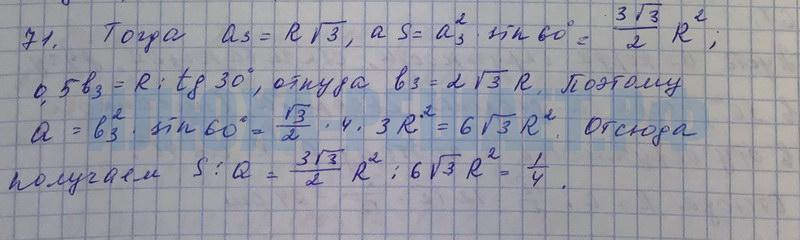 71. Тогда a₃ = R√3, а S = a₃² · sin 60° = 3√3/2 R²;
0,5в₃ = R : tg 30°, откуда в₃ = 2√3 R. Поэтому
Q = в₃² · sin 60° = √3/2 · 4 · 3R² = 6√3 R². Отсюда
получаем S : Q = 3√3/2 R² : 6√3 R² = 1/4.